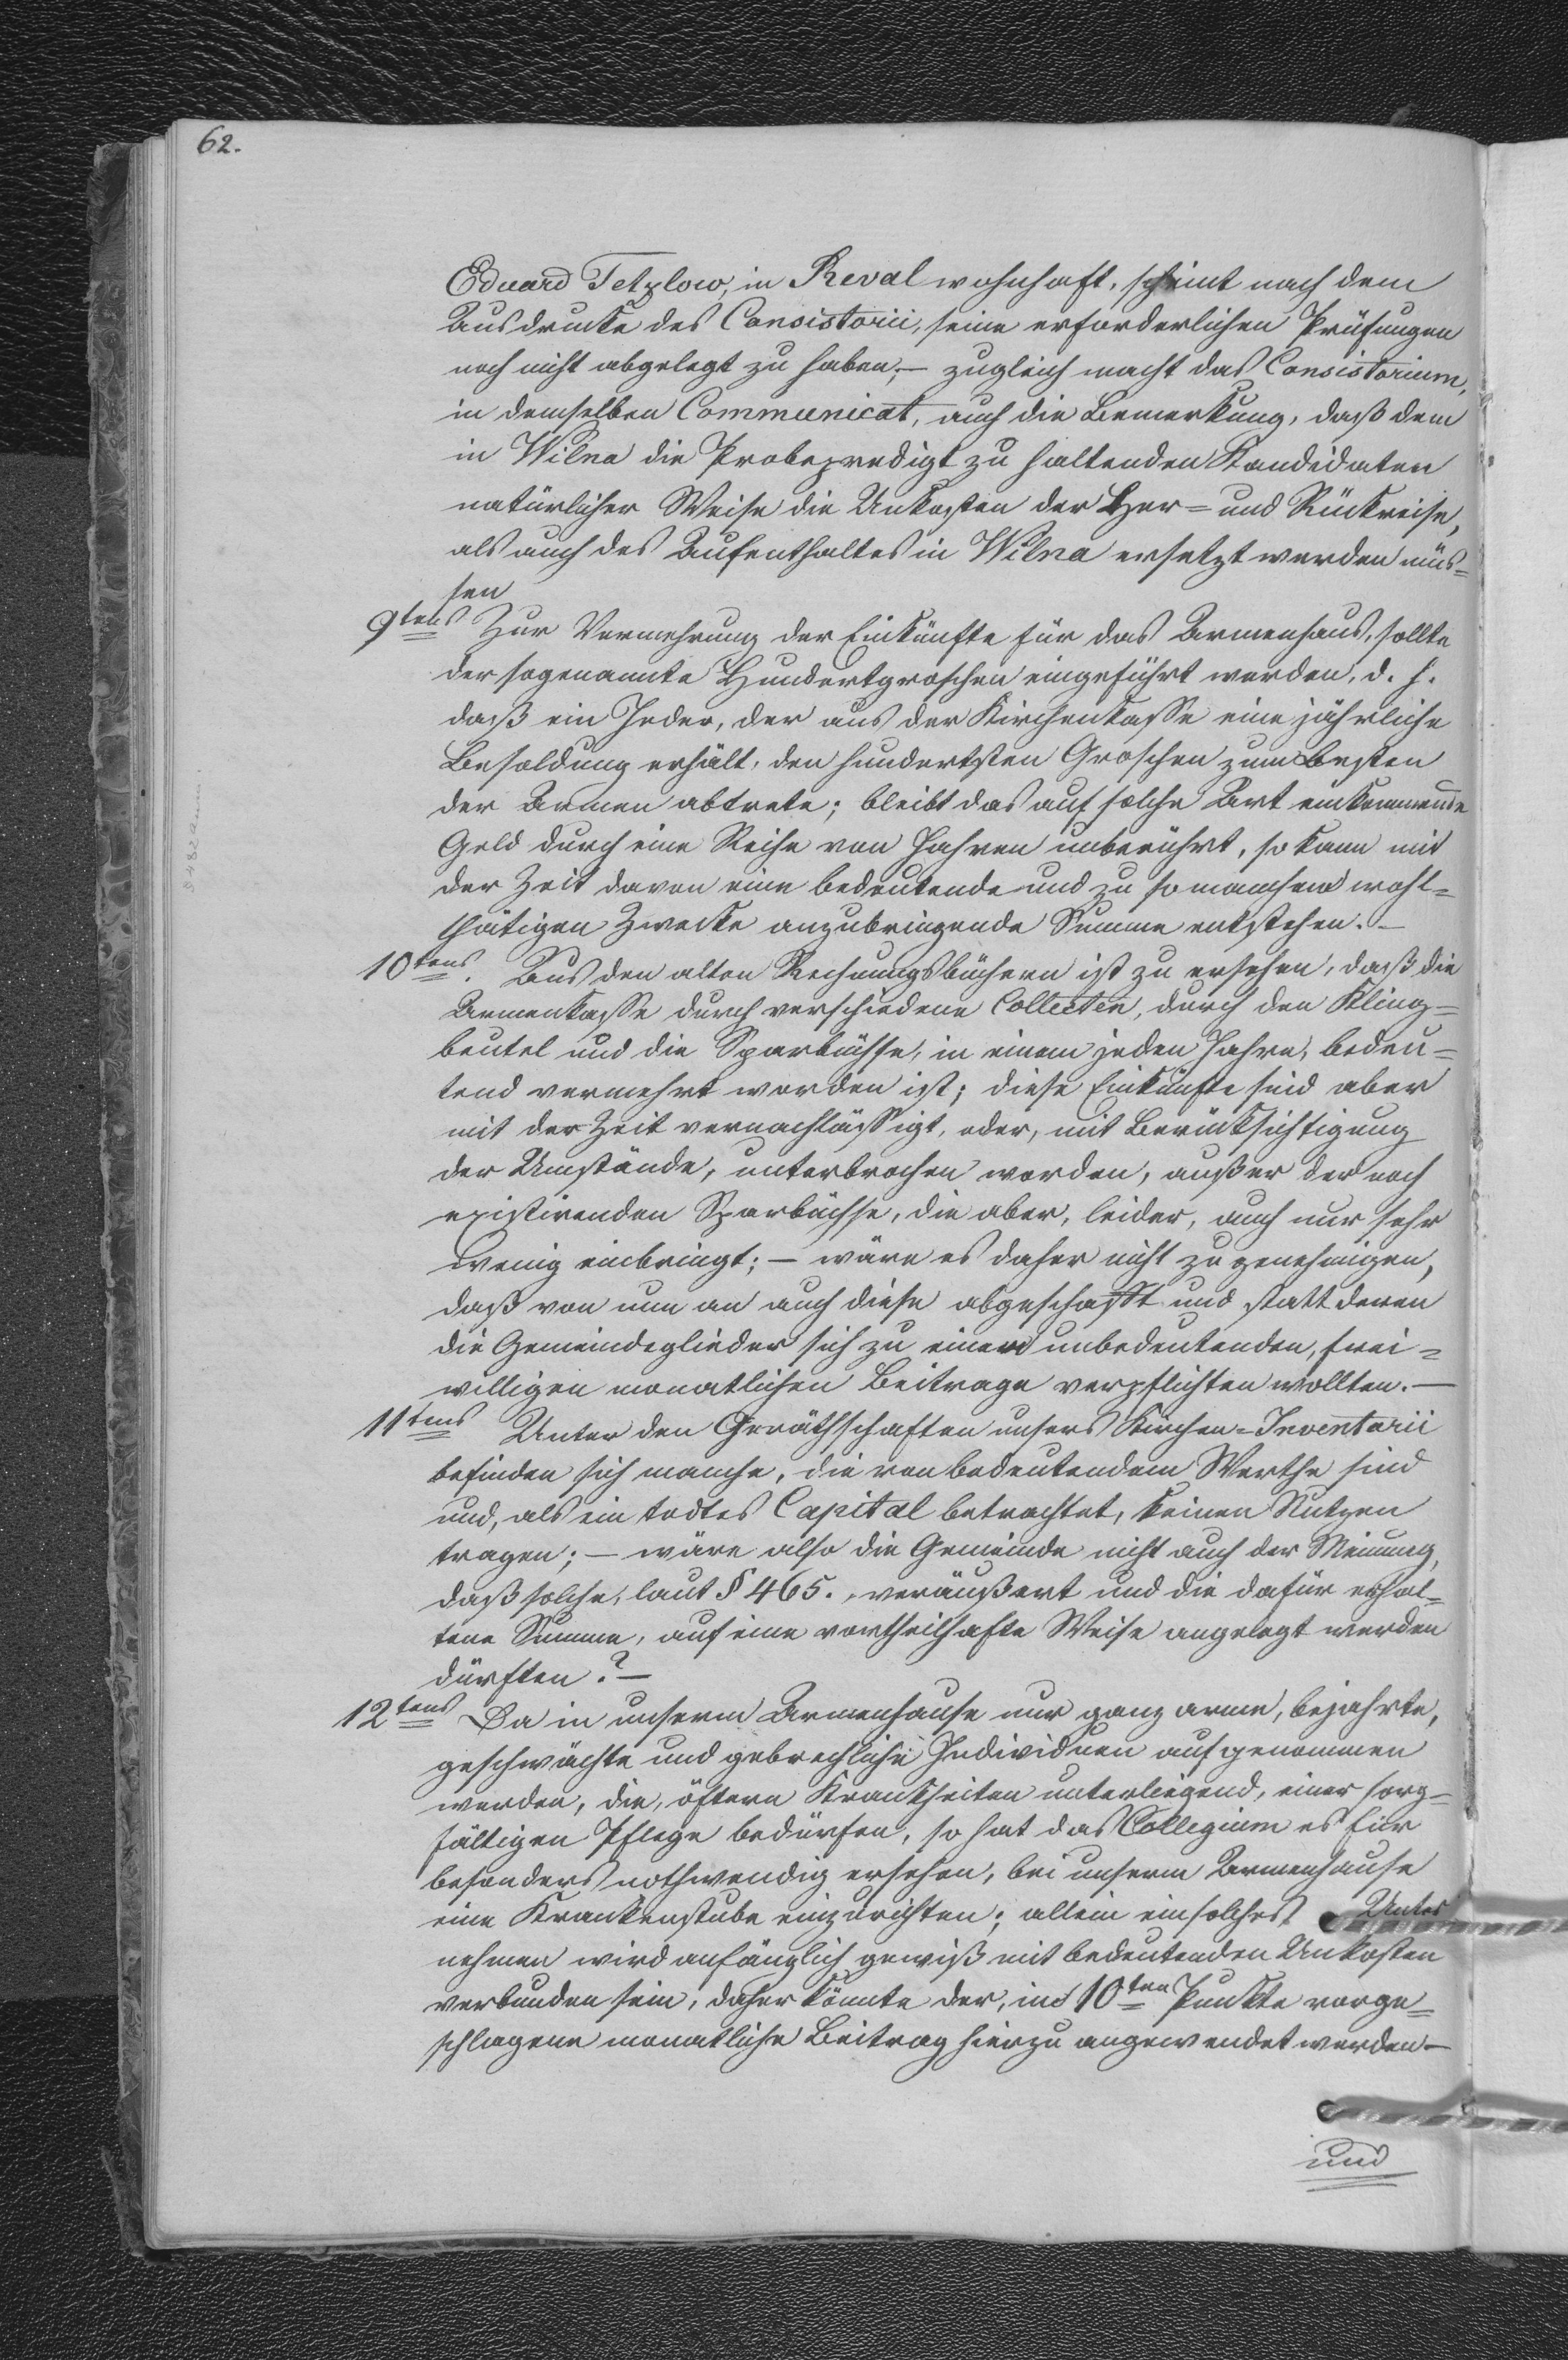 62.
Eduard Tetzlow, in Reval wohnhaft, scheint nach dem
Ausdrucke des Consistorii, seine erforderlichen Prüfungen
noch nicht abgelegt zu haben; — zugleich macht das Consistorium,
in demselben Communicat, auch die Bemerkung, daß dem
in Wilna die Probepredigt zu haltenden Kandidaten
natürlicher Weise die Unkosten der Her= und Rückreise,
als auch des Aufenthaltes in Wilna ersetzt werden müs=
sen
9tens Zur Vermehrung der Einkünfte für das Armenhaus, sollte
der sogenannte Hundertgroschen eingeführt werden, d. h.
daß ein Jeder, der aus der Kirchenkasse eine jährliche
Besoldung erhält, den hundertsten Groschen zum Besten
der Armen abtrete; bleibt das auf solche Art einkommende
Geld durch eine Reihe von Jahren unberührt, so kann mit
der Zeit davon eine bedeutende und zu so manchem wohl=
thätigen Zwecke anzubringende Summe entstehen. —
10tens. Aus den alten Rechnungsbüchern ist zu ersehen, daß die
Armenkasse durch verschiedene Collecten, durch den Kling=
beutel und die Sparbüchse, in einem jeden Jahre, bedeu=
tend vermehrt worden ist; diese Einkünfte sind aber
mit der Zeit vernachlässigt, oder, mit Berücksichtigung
der Umstände, unterbrochen worden, außer der noch
existirenden Sparbüchse, die aber, leider, auch nur sehr
wenig einbringt; — wäre es daher nicht zu genehmigen,
daß von nun an auch diese abgeschafft und statt deren
die Gemeindeglieder sich zu einem unbedeutenden, frei=
willigen monatlichen Beitrage verpflichten wollten. —
11tens Unter den Geräthschaften unsers Kirchen=Inventarii
befinden sich manche, die von bedeutendem Werthe sind
und, als ein todtes Capital betrachtet, keinen Nutzen
tragen; — wäre also die Gemeinde nicht auch der Meinung,
daß solche, laut § 465., veräußert und die dafür erhal=
tene Summe, auf eine vortheilhafte Weise angelegt werden
dürften? —
12tens Da in unserm Armenhause nur ganz arme, bejahrte,
geschwächte und gebrechliche Individuen aufgenommen
werden, die, öftern Krankheiten unterliegend, einer sorg=
fältigen Pflege bedürfen, so hat das Collegium es für
besonders nothwendig ersehen, bei unserm Armenhause
eine Krankenstube einzurichten; allein ein solches Unter
nehmen wird anfänglich gewiß mit bedeutenden Unkosten
verbunden sein, daher könnte der, im 10ten Punkte vorge=
schlagene monatliche Beitrag hierzu angewendet werden —
und